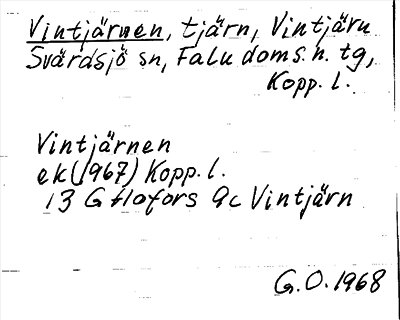 Vintjärnen, tjärn, Vintjärn
Svärdsjö sn, Falu doms.n. tg,
Kopp. l.
Vintjärnen
ek (1967) Kopp. l.
13 G Hofors 9c Vintjärn
G.O. 1968